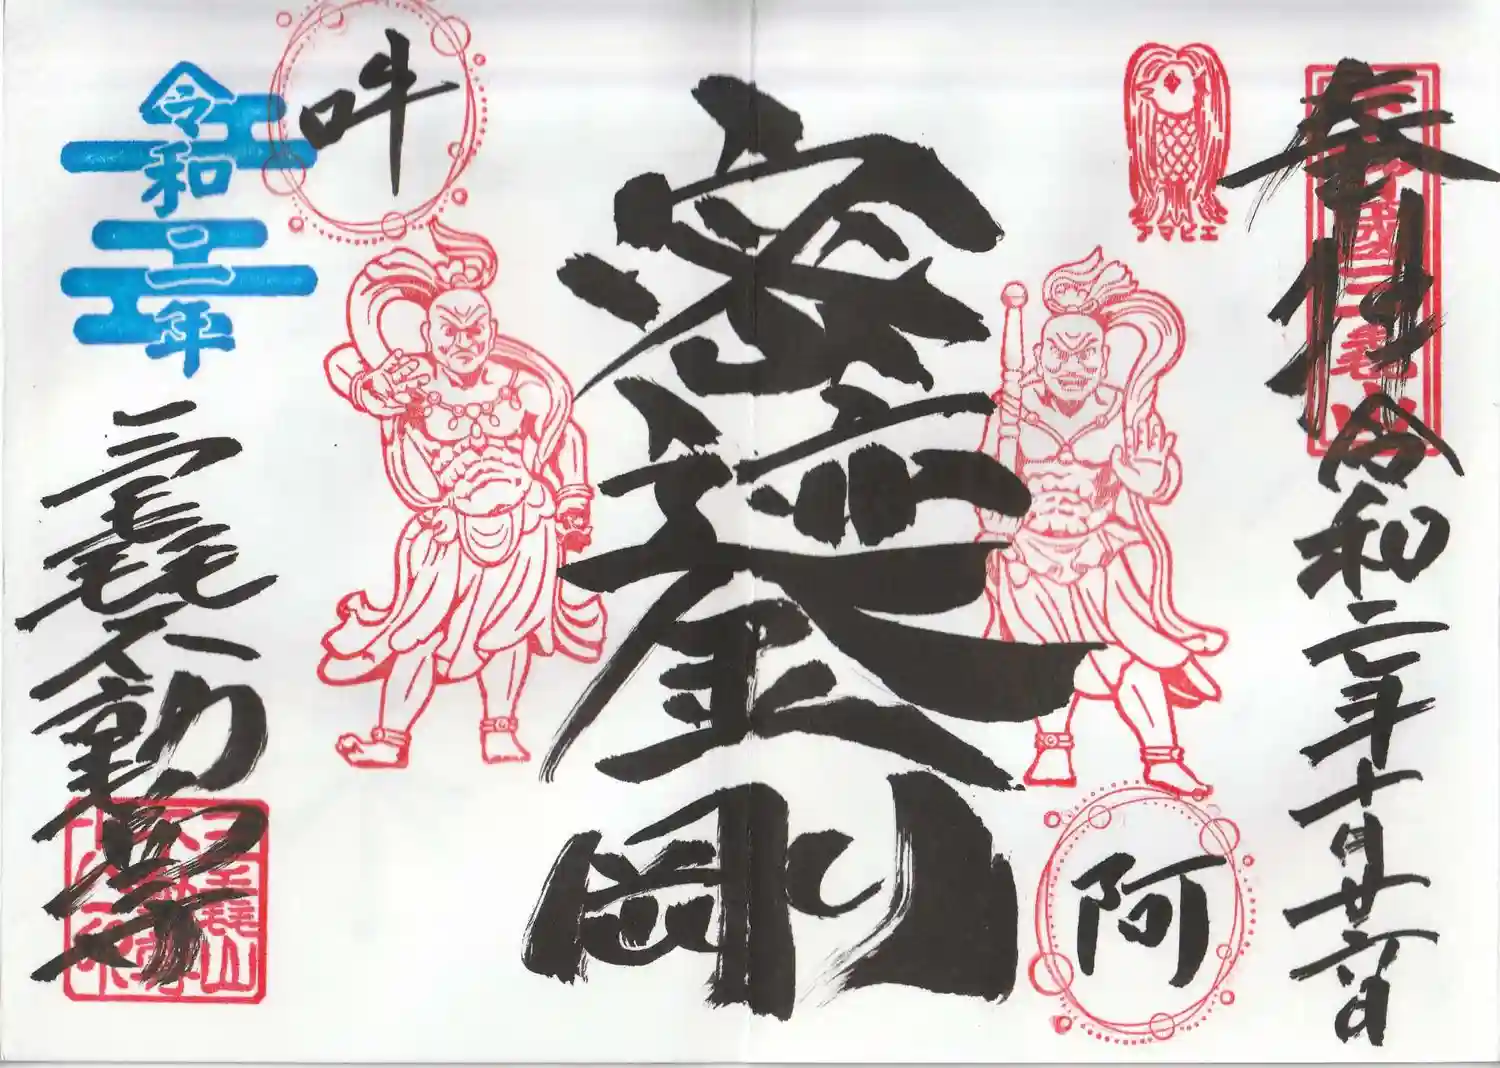 奉拝
令和二年十月廿六日
下野國三毳山
アマビエ
阿
密迹金剛
吽
令和二年
三毳不動尊